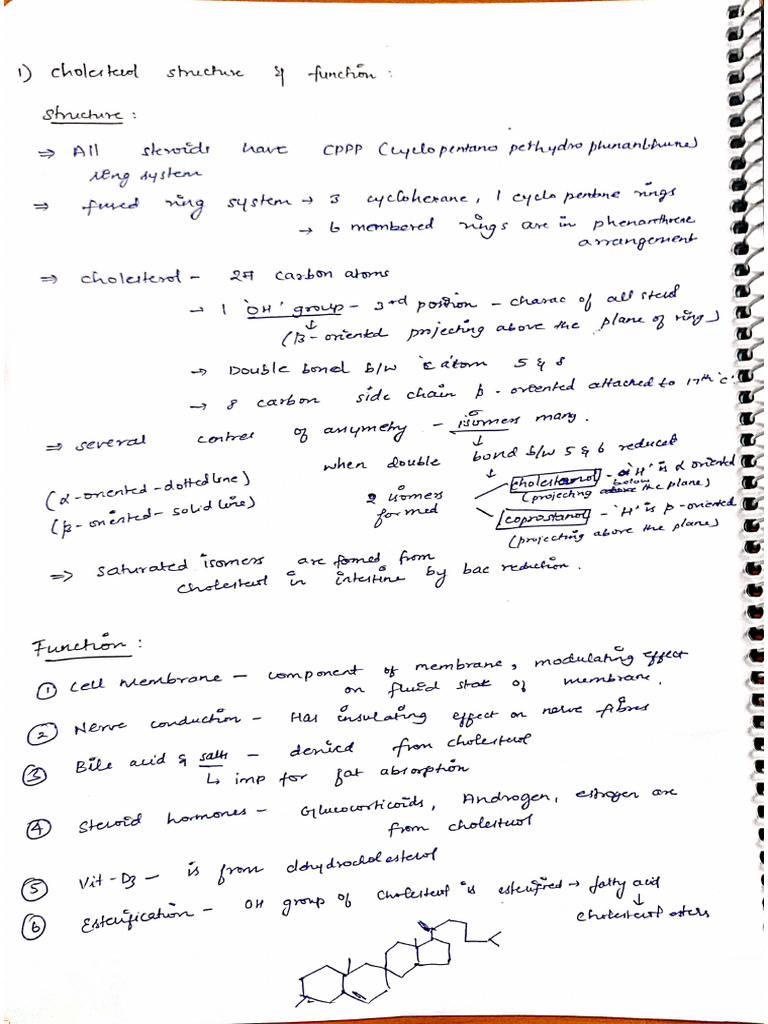 1) Cholesterol structure & function :
Structure :
⇒ All steroids have CPPP (Cyclopentano pethydro phenanthrene)
ring system
⇒ fused ring system → 3 cyclohexane, 1 cyclo pentane rings
→ 6 membered rings are in phenanthrene
arrangement
⇒ Cholesterol - 27 carbon atoms
→ 1 'OH' group - 3rd position - charac of all sterol
↓
(β- oriented projecting above the plane of ring)
→ Double bond b/w 'c' atom 5 & 8
→ 8 carbon side chain β - oriented attached to 17th 'c'.
⇒ several centres of assymetry - isomers many.
↓
when double bond b/w 5 & 6 reduced
↓
(α-oriented - dotted line)
(β-oriented - solid line)
2 isomers
formed
cholestanol - 'H' is α oriented
below
(projecting the plane)
coprostanol - 'H' is β-oriented
(projecting above the plane)
⇒ Saturated isomers are formed from
cholesterol in intestine by bac reduction.
Function :
① Cell Membrane - component of membrane, modulating effect
on fluid state of membrane.
② Nerve conduction - Has insulating effect on nerve fibres
③ Bile acid & salts - derived from cholesterol
↳ imp for fat absorption
④ Steroid hormones - Glucocorticoids, Androgen, estrogen are
from cholesterol
⑤ Vit-D3 - is from dehydrocholesterol
⑥ Esterification - OH group of Cholesterol is esterified → fatty acid
↓
Cholesterol esters